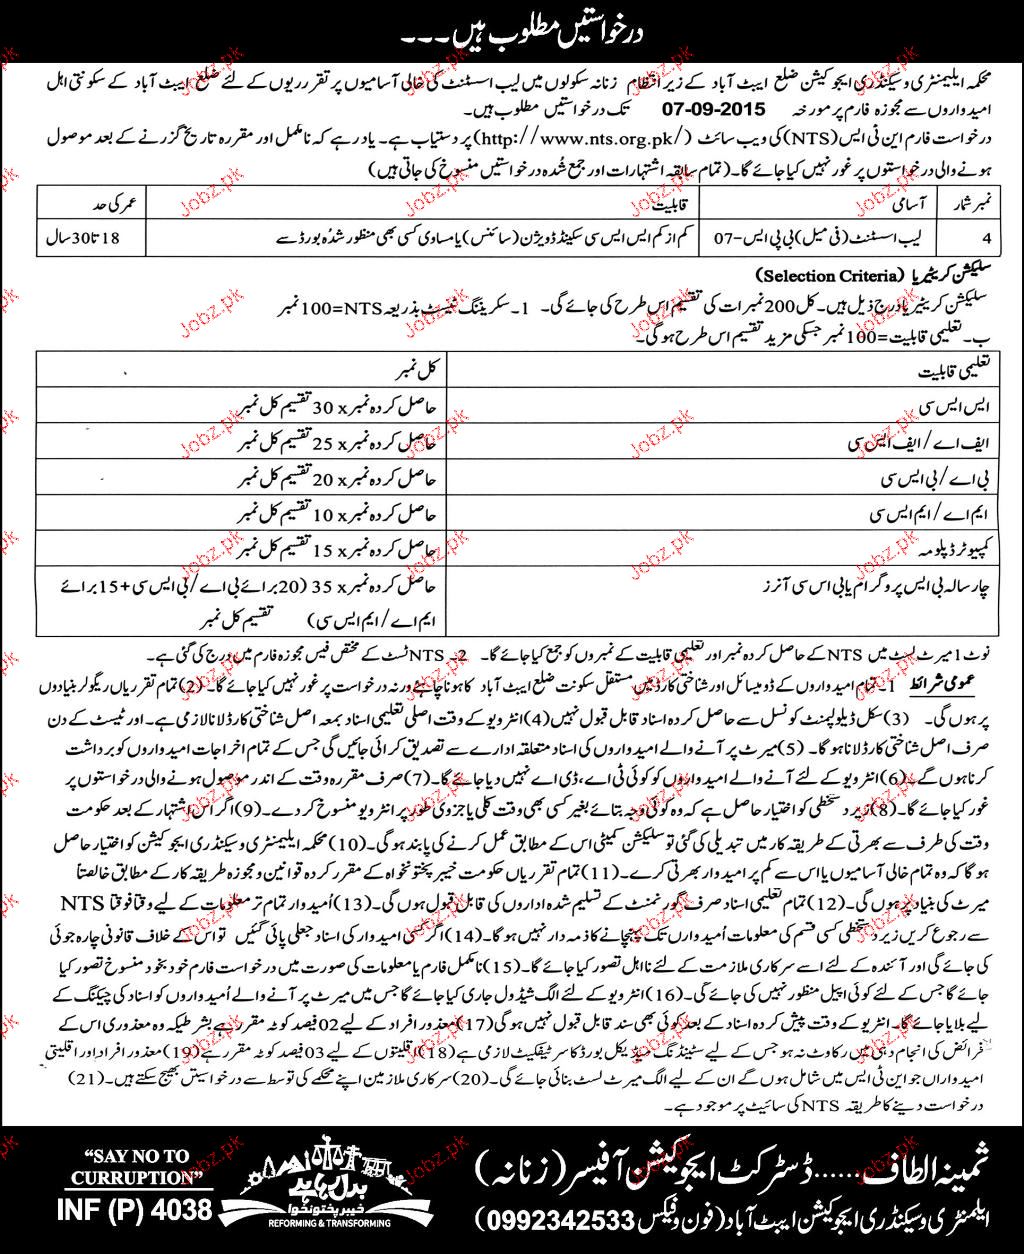 درخواستیں مطلوب ہیں۔۔۔
محکمہ ایلیمنٹری و سیکنڈری ایجوکیشن ضلع ایبٹ آباد کے زیر انتظام زنانہ سکولوں میں لیب اسسٹنٹ کی خالی آسامیوں پر تقرریوں کے لئے ضلع ایبٹ آباد کے سکونتی اہل
امیدواروں سے مجوزہ فارم پر مورخہ 07-09-2015 تک درخواستیں مطلوب ہیں۔
درخواست فارم این ٹی ایس (NTS) کی ویب سائٹ (http://www.nts.org.pk/) پر دستیاب ہے۔ یاد رہے کہ نامکمل اور مقررہ تاریخ گزرنے کے بعد موصول
ہونے والی درخواستوں پر غور نہیں کیا جائے گا۔ (تمام سابقہ اشتہارات اور جمع شُدہ درخواستیں منسوخ کی جاتی ہیں)
نمبر شمار آسامی قابلیت عمر کی حد
4 لیب اسسٹنٹ (فی میل) بی پی ایس-07 کم از کم ایس ایس سی سکینڈ ڈویژن (سائنس) یا مساوی کسی بھی منظور شدہ بورڈ سے 18 تا 30 سال
سلیکشن کریٹیریا (Selection Criteria)
سلیکشن کریٹیریا درج ذیل ہیں۔ کل 200 نمبرات کی تقسیم اس طرح کی جائے گی۔ 1۔ سکریننگ ٹیسٹ بذریعہ NTS=100 نمبر
ب۔ تعلیمی قابلیت=100 نمبر جسکی مزید تقسیم اس طرح ہوگی۔
تعلیمی قابلیت کل نمبر
ایس ایس سی حاصل کردہ نمبر x 30 تقسیم کل نمبر
ایف اے/ایف ایس سی حاصل کردہ نمبر x 25 تقسیم کل نمبر
بی اے/بی ایس سی حاصل کردہ نمبر x 20 تقسیم کل نمبر
ایم اے/ایم ایس سی حاصل کردہ نمبر x 10 تقسیم کل نمبر
کمپیوٹر ڈپلومہ حاصل کردہ نمبر x 15 تقسیم کل نمبر
چار سالہ بی ایس پروگرام یا بی اس سی آنرز حاصل کردہ نمبر x 35 (20 برائے بی اے/بی ایس سی + 15 برائے
ایم اے/ایم ایس سی) تقسیم کل نمبر
نوٹ 1 میرٹ لسٹ میں NTS کے حاصل کردہ نمبر اور تعلیمی قابلیت کے نمبروں کو جمع کیا جائے گا۔ 2۔ NTS ٹسٹ کے مختص فیس مجوزہ فارم میں درج کی گئی ہے۔
عمومی شرائط 1۔ تمام امیدواروں کے ڈومیسائل اور شناختی کارڈ میں مستقل سکونت ضلع ایبٹ آباد کا ہونا چاہئے ورنہ درخواست پر غور نہیں کیا جائے گا۔ (2) تمام تقرریاں ریگولر بنیادوں
پر ہوں گی۔ (3) سکل ڈیولپمنٹ کونسل سے حاصل کردہ اسناد قابل قبول نہیں (4) انٹرویو کے وقت اصلی تعلیمی اسناد بمعہ اصل شناختی کارڈ لانا لازمی ہے۔ اور ٹیسٹ کے دن
صرف اصل شناختی کارڈ لانا ہوگا۔ (5) میرٹ پر آنے والے امیدواروں کی اسناد متعلقہ ادارے سے تصدیق کرائی جائیں گی جس کے تمام اخراجات امیدواروں کو برداشت
کرنا ہوں گے۔ (6) انٹرویو کے لئے آنے والے امیدواروں کو کوئی ٹی اے، ڈی اے نہیں دیا جائے گا۔ (7) صرف مقررہ وقت کے اندر موصول ہونے والی درخواستوں پر
غور کیا جائے گا۔ (8) زیر دستخطی کو اختیار حاصل ہے کہ وہ کوئی وجہ بتائے بغیر کسی بھی وقت کلی یا جزوی طور پر انٹرویو منسوخ کر دے۔ (9) اگر اس اشتہار کے بعد حکومت
وقت کی طرف سے بھرتی کے طریقہ کار میں تبدیلی کی گئی تو سلیکشن کمیٹی اس کے مطابق عمل کرنے کی پابند ہوگی۔ (10) محکمہ ایلیمنٹری و سیکنڈری ایجوکیشن کو اختیار حاصل
ہوگا کہ وہ تمام خالی آسامیوں یا اس سے کم پر امیدوار بھرتی کرے۔ (11) تمام تقرریاں حکومت خیبر پختونخواہ کے مقرر کردہ قوانین و مجوزہ طریقہ کار کے مطابق خالصتاً
میرٹ کی بنیاد پر ہوں گی۔ (12) تمام تعلیمی اسناد صرف گورنمنٹ کے تسلیم شدہ اداروں کی قابل قبول ہوں گی۔ (13) اُمیدوار تمام تر معلومات کے لیے وقتاً فوقتاً NTS
سے رجوع کریں زیر دستخطی کسی قسم کی معلومات اُمیدوارں تک پہنچانے کا ذمہ دار نہیں ہوگا۔ (14) اگر کسی امیدوار کی اسناد جعلی پائی گئیں تو اس کے خلاف قانونی چارہ جوئی
کی جائے گی اور آئندہ کے لئے اسے سرکاری ملازمت کے لئے نااہل تصور کیا جائے گا۔ (15) نامکمل فارم یا معلومات کی صورت میں درخواست فارم خود بخود منسوخ تصور کیا
جائے گا جس کے لئے کوئی اپیل منظور نہیں کی جائے گی۔ (16) انٹرویو کے لئے الگ شیڈول جاری کیا جائے گا جس میں میرٹ پر آنے والے اُمیدواروں کو اسناد کی چیکنگ کے
لیے بلایا جائے گا۔ انٹرویو کے وقت پیش کردہ اسناد کے بعد کوئی بھی سند قابل قبول نہیں ہوگی (17) معذور افراد کے لیے 02 فیصد کوٹہ مقرر ہے بشرطیکہ وہ معذوری اس کے
فرائض کی انجام دہی میں رکاوٹ نہ ہو جس کے لیے سٹینڈنگ میڈیکل بورڈ کا سرٹیفکیٹ لازمی ہے (18) اقلیتوں کے لیے 03 فیصد کوٹہ مقرر ہے (19) معذور افراد اور اقلیتی
امیدواراں جو این ٹی ایس میں شامل ہوں گے ان کے لیے الگ میرٹ لسٹ بنائی جائے گی۔ (20) سرکاری ملازمین اپنے محکمے کی توسط سے درخواستیں بھیج سکتے ہیں۔ (21)
درخواست دینے کا طریقہ NTS کی سائیٹ پر موجود ہے۔
ثمینہ الطاف......ڈسٹرکٹ ایجوکیشن آفیسر (زنانہ)
ایلمنٹری و سیکنڈری ایجوکیشن ایبٹ آباد (فون و فیکس 0992342533)
بدل رہا ہے
خیبر پختونخوا
REFORMING & TRANSFORMING
"SAY NO TO
CURRUPTION"
INF (P) 4038
Jobz.pk